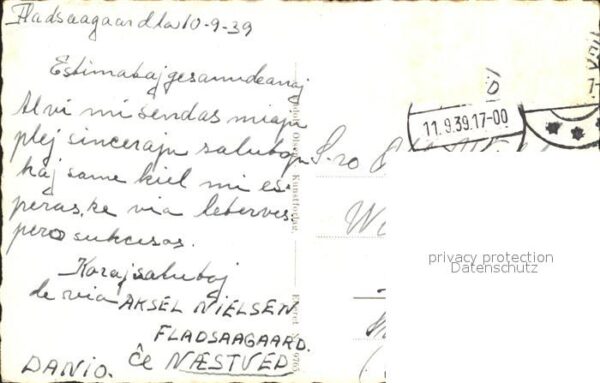 Fladsaagaard la 10-9-39
Estimataj gesamideanoj
Al vi mi sendas miajn
plej sincerajn salutojn
kaj same kiel mi es-
peras, ke via leterves-
pero sukcesos.
Koraj salutoj
de via AKSEL NIELSEN
FLADSAAGAARD.
ĉe NÆSTVED
DANIO.
Kunstforlag
Eneret
11.9.39.17-00
S-ro
privacy protection
Datenschutz